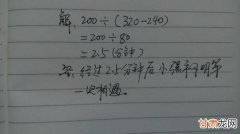 解：200÷(320-240)
=200÷80
=2.5(分钟)
答：经过2.5分钟后小强和明第
一次相遇。
甘肃龙网